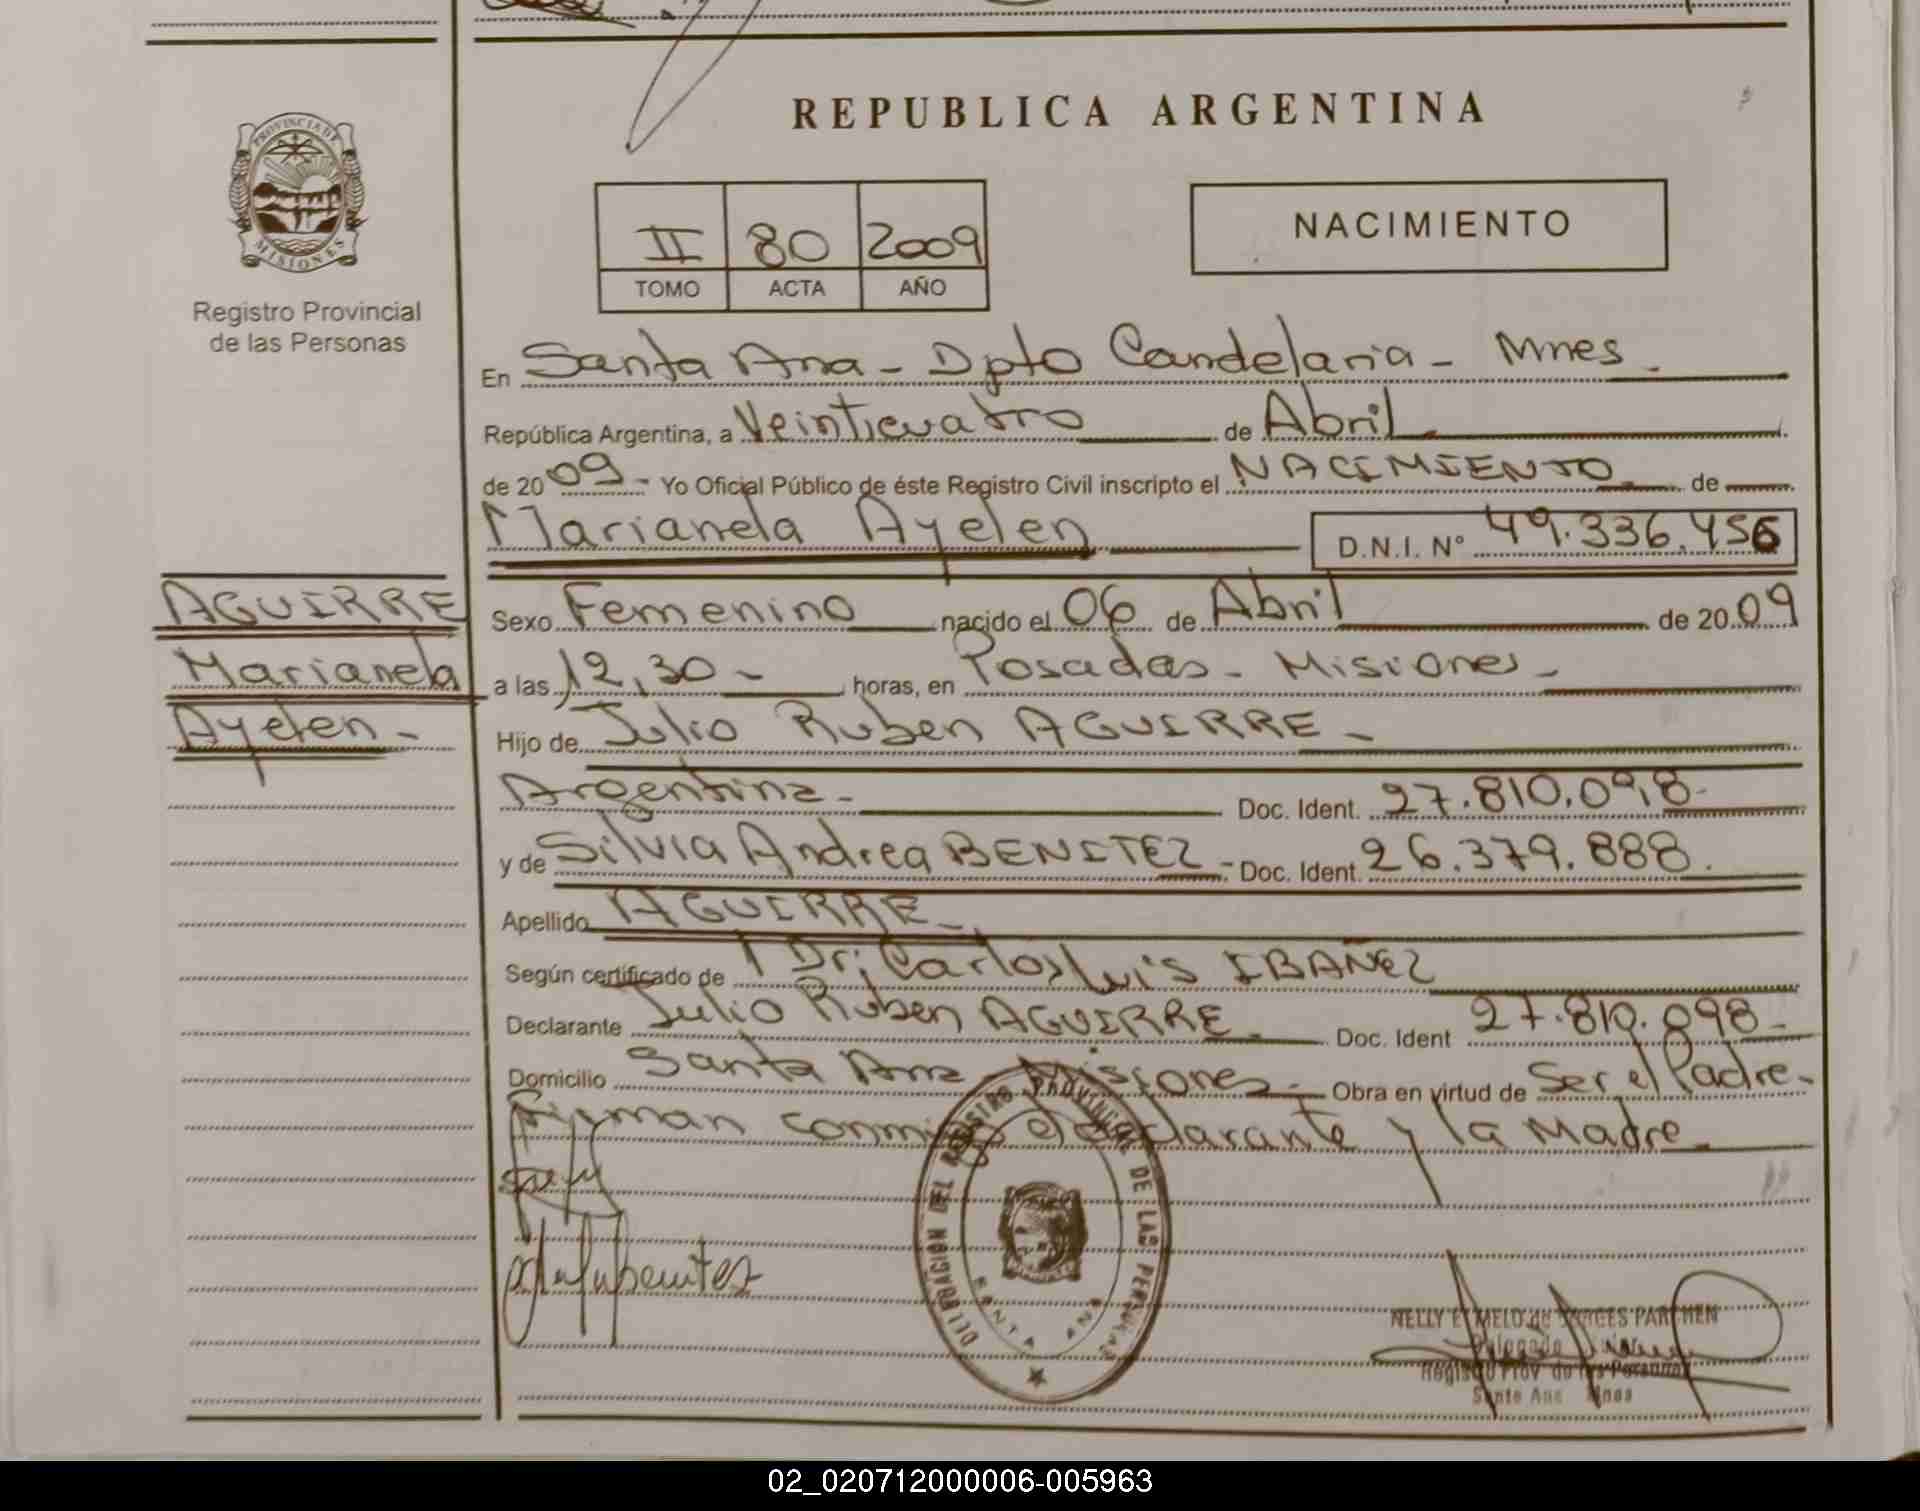 REPUBLICA ARGENTINA
PROVINCIA DE
MISIONES
Registro Provincial
de las Personas
II 80 2009
TOMO ACTA AÑO
NACIMIENTO
En Santa Ana - Dpto Candelaria - Mnes.
República Argentina, a Veinticuatro de Abril
de 2009- Yo Oficial Público de éste Registro Civil inscripto el NACIMIENTO de
Marianela Ayelen D.N.I. Nº 49.336.456
AGUIRRE
Marianela
Ayelen -
Sexo Femenino nacido el 06 de Abril de 2009
a las 12,30 - horas, en Posadas - Misiones -
Hijo de Julio Ruben AGUIRRE -
Argentina - Doc. Ident. 27.810.098-
y de Silvia Andrea BENITEZ - Doc. Ident. 26.379.888.
Apellido AGUIRRE -
Según certificado de Dr: Carlos Luis IBAÑEZ
Declarante Julio Ruben AGUIRRE - Doc. Ident 27.810.098-
Domicilio Santa Ana Misiones - Obra en virtud de Ser el Padre -
Firman conmigo el declarante y la Madre
DELEGACION DEL REGISTRO PROVINCIAL DE LAS PERSONAS
SANTA ANA
NELLY E. MELO de
Delegado
Registro Prov. de las Personas
Santa Ana Mnes
02_020712000006-005963